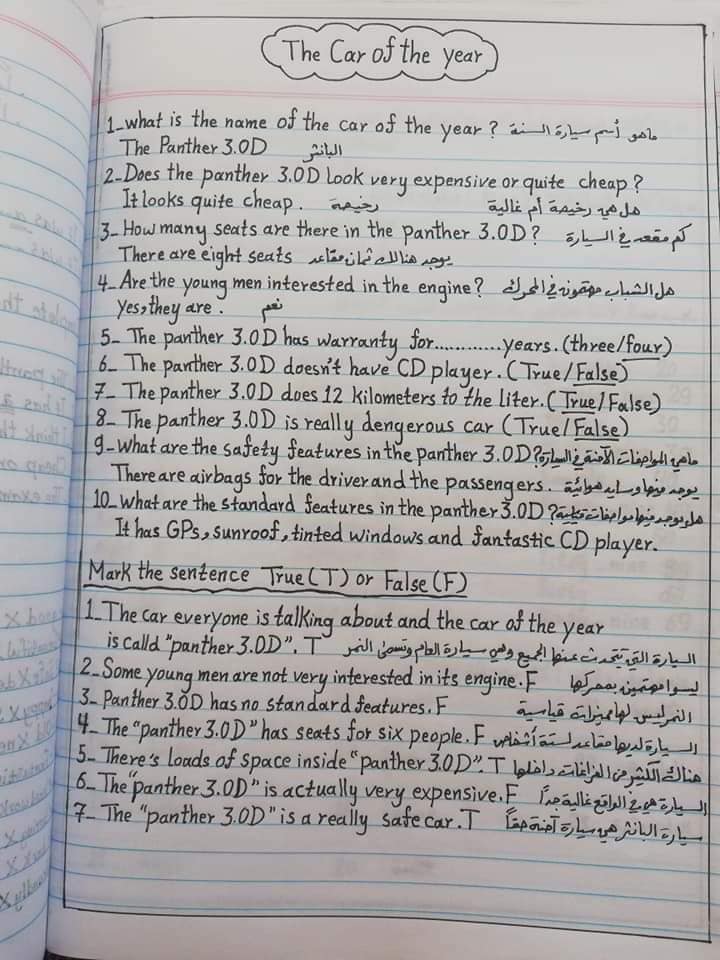 The Car of the year
1- what is the name of the car of the year? ماهو أسم سيارة السنة
The Panther 3.0D البانثر
2- Does the panther 3.0D Look very expensive or quite cheap?
It looks quite cheap. رخيصة هل هي رخيصة أم غالية
3- How many seats are there in the panther 3.0D? كم مقعد في السيارة
There are eight seats يوجد هنالك ثمان مقاعد
4- Are the young men interested in the engine? هل الشباب مهتمونه في المحرك
yes, they are. نعم
5- The panther 3.0D has warranty for............years. (three/four)
6- The panther 3.0D doesn't have CD player. (True/False)
7- The panther 3.0D does 12 kilometers to the liter. (True/False)
8- The panther 3.0D is really dengerous car (True/False)
9- What are the safety features in the panther 3.0D? ماهي المواصفات الآمنة في السيارة
There are airbags for the driver and the passengers. يوجد فيها وسايد هوائية
10- What are the standard features in the panther 3.0D? هل يوجد فيها مواصفات
It has GPs, sunroof, tinted windows and fantastic CD player.
Mark the sentence True (T) or False (F)
1- The car everyone is talking about and the car of the year
is calld "panther 3.0D". T السيارة التي تتحدث عنها الجميع وهي سيارة العام وتسمى النمر
2- Some young men are not very interested in its engine. F ليسوا مهتمين بمحركها
3- Panther 3.0D has no standard features. F النمر ليس لها ميزات قياسية
4- The "panther 3.0D" has seats for six people. F السيارة لديها مقاعد لستة أشخاص
5- There's loads of space inside "panther 3.0D". T هناك الكثير من الفراغات داخلها
6- The "panther 3.0D" is actually very expensive. F السيارة هي في الواقع غالية جداً
7- The "panther 3.0D" is a really safe car. T سيارة البانثر هي سيارة آمنة حقاً